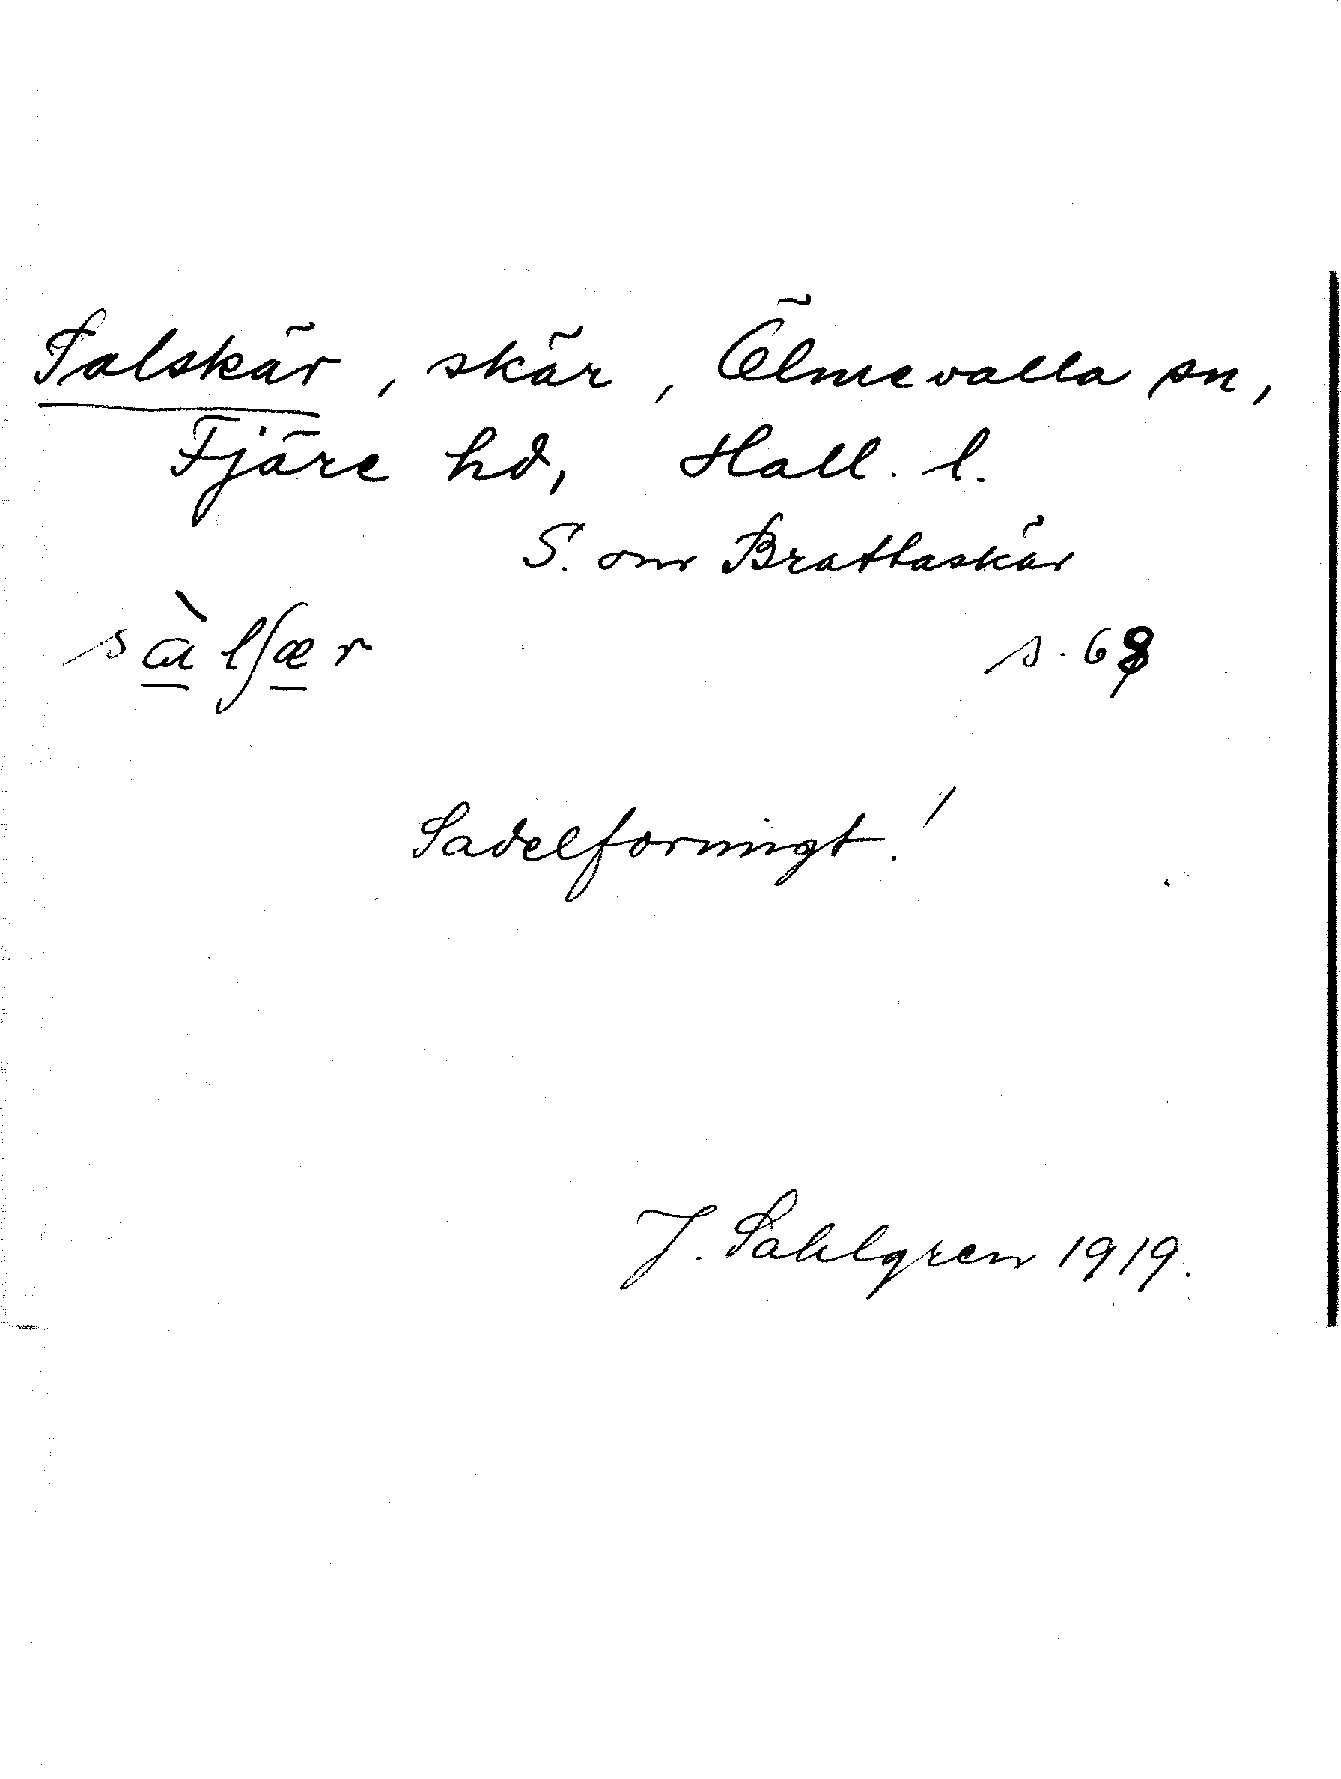 Salskär, skär, Ölmevalla sn,
Fjäre hd, Hall. l.
S. om Brattaskär
sàlʃær s. 68
Sadelformigt!
J. Sahlgren 1919.